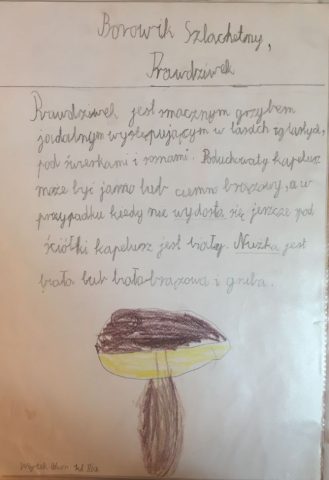 Borowik Szlachetny,
Prawdziwek
Prawdziwek jest smacznym grzybem
jadalnym występującym w lasach iglastych,
pod świerkami i sosnami. Poduchowaty kapelusz
może być jasno lub ciemno brązowy, a w
przypadku kiedy nie wydostał się jeszcze pod
ściółki kapelusz jest biały. Nużka jest
biała lub biało-brązowa i gruba.
Wojtek kl IIa